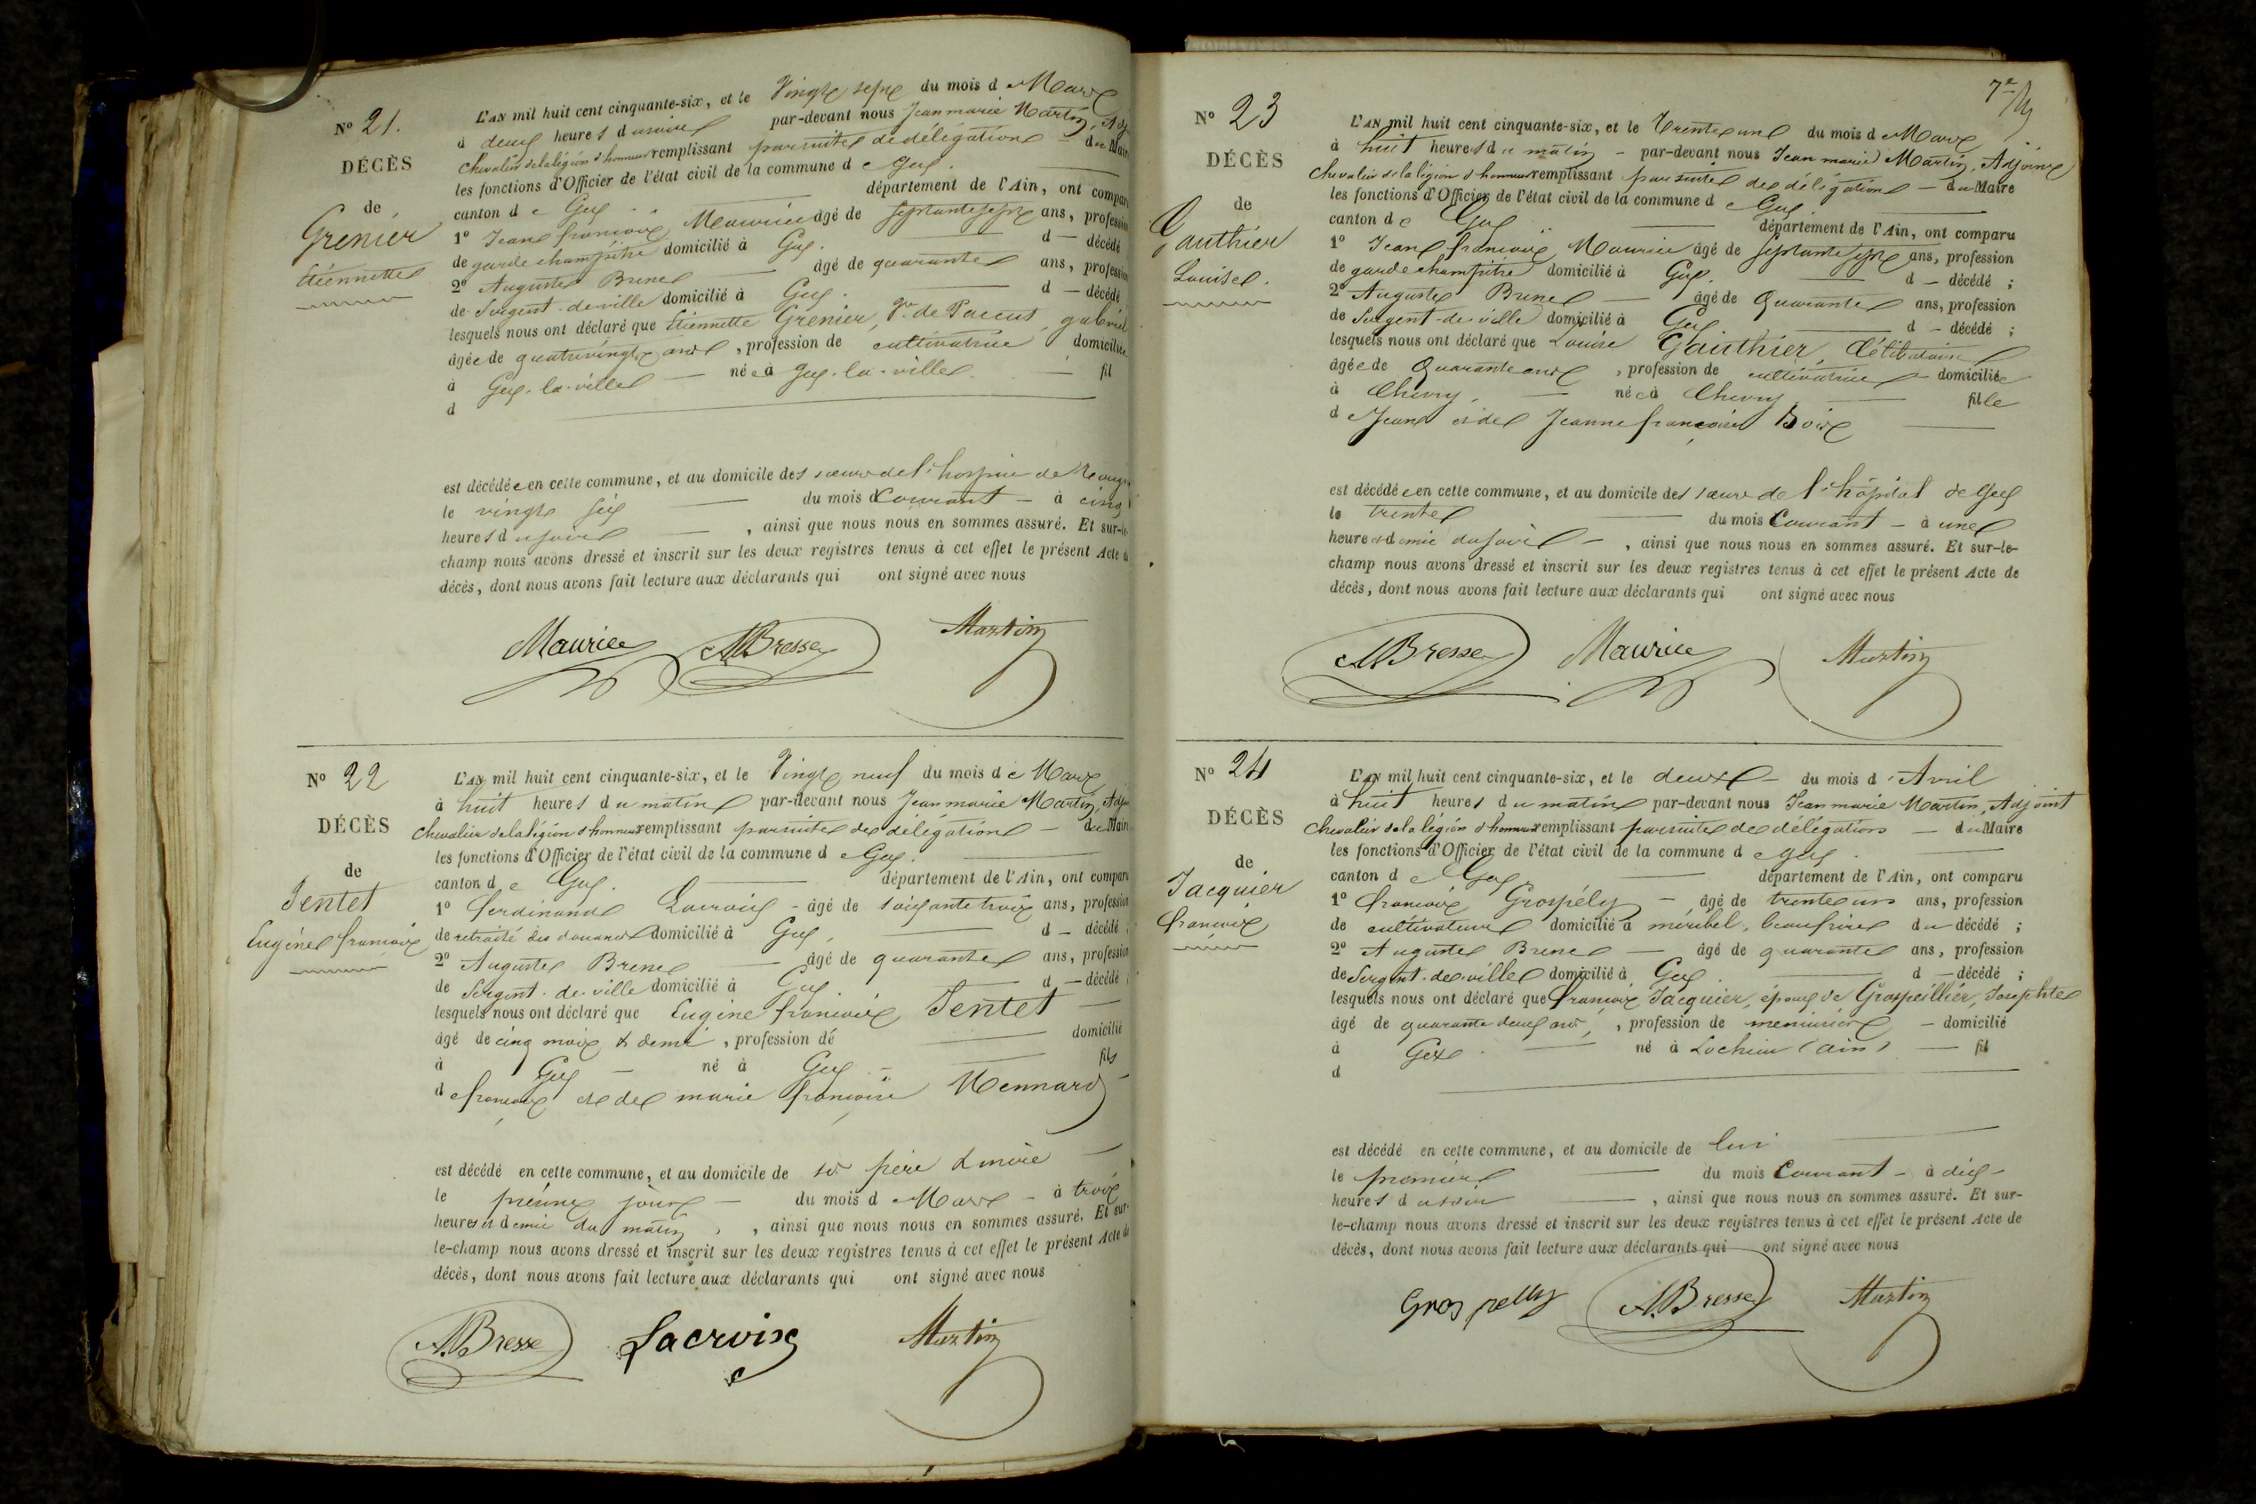 N° 21.
DÉCÈS
de
Grenier
Etiennette
L'AN mil huit cent cinquante-six, et le Vingt sept du mois de Mars
à deux heures du soir par-devant nous Jean marie Martin, Adj
chevalier de la légion d'honneur remplissant par suite de délégation du Maire
les fonctions d'Officier de l'état civil de la commune de Gex.
canton de Gex département de l'Ain, ont comparu
1° Jean françois Maurice âgé de septante sept ans, profession
de garde champêtre domicilié à Gex. d — décédé
2° Auguste Brene âgé de quarante ans, profession
de Sergent de ville domicilié à Gex. d — décédé
lesquels nous ont déclaré que Etiennette Grenier, Vve de gabriel
âgée de quatrevingts ans, profession de cultivatrice domiciliée
à Gex-la-ville née à Gex-la-ville. fil
d
est décédée en cette commune, et au domicile des sœurs de l'hospice de
le vingt six du mois de Courant — à cinq
heures du soir, ainsi que nous nous en sommes assuré. Et sur-le-
champ nous avons dressé et inscrit sur les deux registres tenus à cet effet le présent Acte de
décès, dont nous avons fait lecture aux déclarants qui ont signé avec nous
Maurice ABresse Martin
N° 22
DÉCÈS
de
Tentet
Eugène françois
L'AN mil huit cent cinquante-six, et le Vingt neuf du mois de Mars
à huit heures du matin par-devant nous Jean marie Martin, Adj
chevalier de la légion d'honneur remplissant par suite de délégation — du Maire
les fonctions d'Officier de l'état civil de la commune de Gex.
canton de Gex. département de l'Ain, ont comparu
1° Ferdinand Lacroix - âgé de soixante trois ans, profession
de retraité des douanes domicilié à Gex, d — décédé ;
2° Auguste Brene âgé de quarante ans, profession
de Sergent de ville domicilié à Gex. d — décédé ;
lesquels nous ont déclaré que Eugène françois Tentet —
âgé de cinq mois & demi, profession de domicilié
à Gex — né à Gex — fils
de françois et de marie françoise Mennard
est décédé en cette commune, et au domicile de ses père & mère —
le jour — du mois de Mars — à trois
heures et demie du matin, ainsi que nous nous en sommes assuré. Et sur-
le-champ nous avons dressé et inscrit sur les deux registres tenus à cet effet le présent Acte de
décès, dont nous avons fait lecture aux déclarants qui ont signé avec nous
A.Bresse Lacroix Martin
7e
N° 23
DÉCÈS
de
Gauthier
Louise.
L'AN mil huit cent cinquante-six, et le Trente un du mois de Mars
à huit heures du matin — par-devant nous Jean marie Martin, Adjoint
chevalier de la légion d'honneur remplissant par suite de délégation — du Maire
les fonctions d'Officier de l'état civil de la commune de Gex.
canton de Gex département de l'Ain, ont comparu
1° Jean françois Maurice âgé de septante sept ans, profession
de garde champêtre domicilié à Gex. d — décédé ;
2° Auguste Brene — âgé de Quarante ans, profession
de Sergent de ville domicilié à Gex. d — décédé ;
lesquels nous ont déclaré que Louise Gauthier, Célibataire
âgée de Quarante ans, profession de cultivatrice domiciliée
à Chevry, — née à Chevry, fille
de Jean et de Jeanne françoise Bois
est décédée en cette commune, et au domicile des sœurs de l'hôpital de Gex
le trente du mois Courant — à une
heure et demie du soir —, ainsi que nous nous en sommes assuré. Et sur-le-
champ nous avons dressé et inscrit sur les deux registres tenus à cet effet le présent Acte de
décès, dont nous avons fait lecture aux déclarants qui ont signé avec nous
ABresse Maurice Martin
N° 24
DÉCÈS
de
Jacquier
françois
L'AN mil huit cent cinquante-six, et le deux — du mois d'Avril
à huit heures du matin par-devant nous Jean marie Martin, Adjoint
chevalier de la légion d'honneur remplissant par suite de délégation — du Maire
les fonctions d'Officier de l'état civil de la commune de Gex.
canton de Gex, département de l'Ain, ont comparu
1° françois Grospély — âgé de trente un ans, profession
de cultivateur domicilié à méribel, beaufrère du décédé ;
2° Auguste Brene — âgé de quarante ans, profession
de Sergent de ville domicilié à Gex. d — décédé ;
lesquels nous ont déclaré que françois Jacquier, époux de Grospeillier, Josephte
âgé de quarante deux ans, profession de menuisier — domicilié
à Gex. né à Lochieu (ain) — fil
d
est décédé en cette commune, et au domicile de lui
le premier du mois Courant — à dix —
heures du soir, ainsi que nous nous en sommes assuré. Et sur-
le-champ nous avons dressé et inscrit sur les deux registres tenus à cet effet le présent Acte de
décès, dont nous avons fait lecture aux déclarants qui ont signé avec nous
Gros pelly A.Bresse Martin